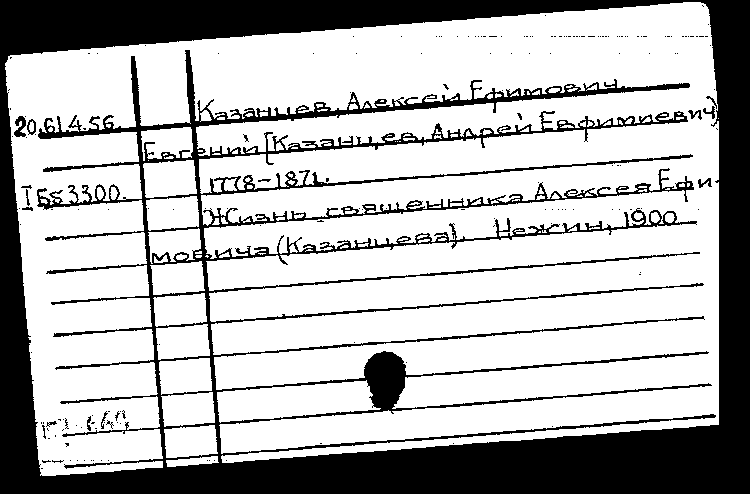 Казанцев, Алексей Ефимович.
20.61.4.56.
Евгений [Казанцев, Андрей Евфимиевич]
I Бs 3300.
1778-1871.
Жизнь священника Алексея Ефи-
мовича (Казанцева). Нежин, 1900